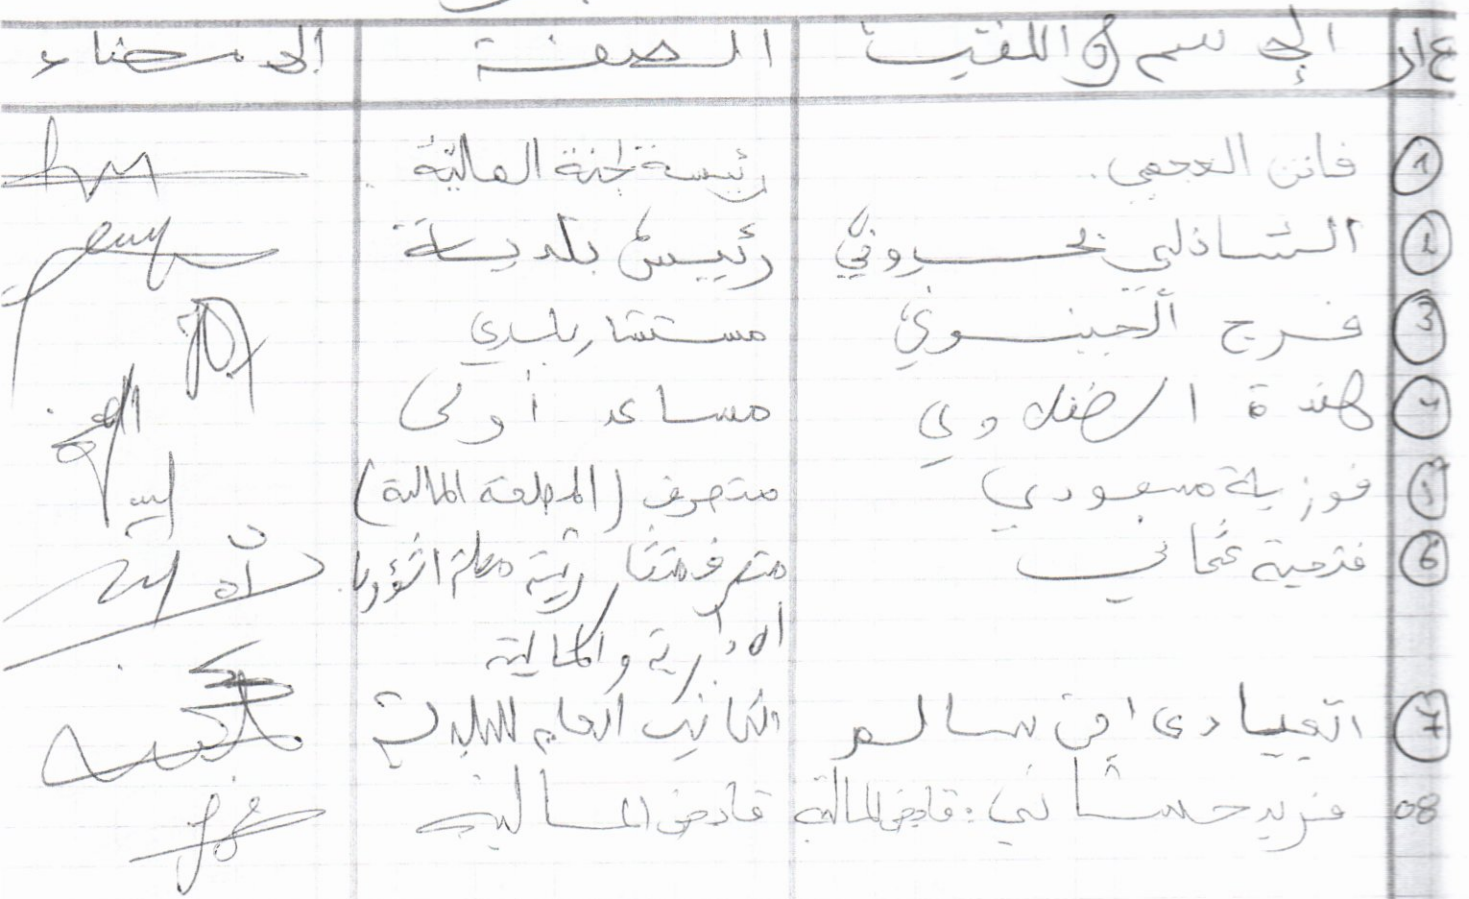 ع/ر الإسم و اللقب الصفة الإمضاء
1 فاتن العجمي رئيسة لجنة المالية
2 الشاذلي رئيس بلدية
3 فرج الجينوي مستشار بلدي
4 هندة مساعد أولى
5 فوزية مسعودي متصرف (المصلحة المالية)
6 فتحية عثماني متصرف مستشار رئيسة مصلحة الشؤون
الادارية والمالية
7 العيادي ابن سالم الكاتب العام للبلدية
08 فريد حساني: قابض المالية قابض المالية